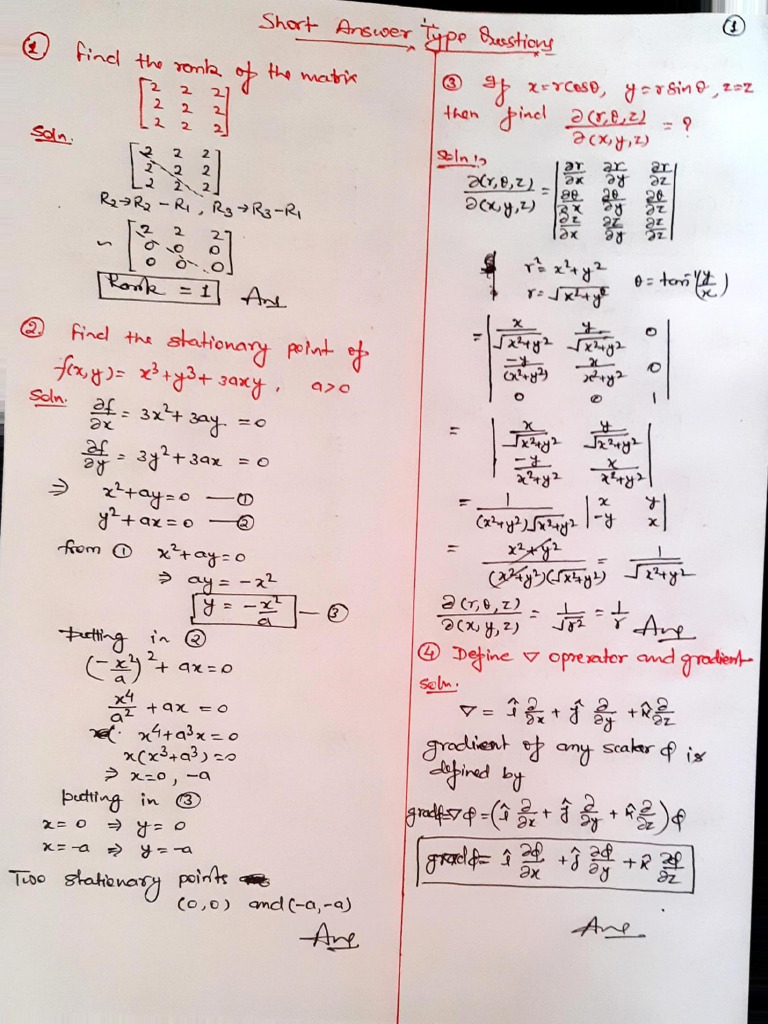 Short Answer Type Questions
①
① find the rank of the matrix
[2 2 2]
[2 2 2]
[2 2 2]
Soln.
[2 2 2]
[2 2 2]
[2 2 2]
R₂→R₂-R₁, R₃→R₃-R₁
~ [2 2 2]
[0 0 0]
[0 0 0]
Rank = 1 Ans
② find the stationary point of
f(x,y) = x³+y³+3axy, a>0
Soln. ∂f/∂x = 3x²+3ay = 0
∂f/∂y = 3y²+3ax = 0
⇒ x²+ay=0 —①
y²+ax=0 —②
from ① x²+ay=0
⇒ ay = -x²
y = -x²/a —③
putting in ②
(-x²/a)² + ax=0
x⁴/a² + ax = 0
x⁴+a³x=0
x(x³+a³)=0
⇒ x=0, -a
putting in ③
x=0 ⇒ y=0
x=-a ⇒ y=-a
Two stationary points
(0,0) and (-a,-a)
Ans
③ If x=rcosθ, y=rsinθ, z=z
then find ∂(r,θ,z)/∂(x,y,z) = ?
Soln:
∂(r,θ,z)/∂(x,y,z) = |∂r/∂x ∂r/∂y ∂r/∂z|
|∂θ/∂x ∂θ/∂y ∂θ/∂z|
|∂z/∂x ∂z/∂y ∂z/∂z|
r²=x²+y²
r=√(x²+y²) θ=tan⁻¹(y/x)
= |x/√(x²+y²) y/√(x²+y²) 0|
|-y/(x²+y²) x/(x²+y²) 0|
|0 0 1|
= |x/√(x²+y²) y/√(x²+y²)|
|-y/(x²+y²) x/(x²+y²)|
= 1/((x²+y²)√(x²+y²)) |x y|
|-y x|
= (x²+y²)/((x²+y²)(√(x²+y²))) = 1/√(x²+y²)
∂(r,θ,z)/∂(x,y,z) = 1/√r² = 1/r Ans
④ Define ∇ oprerator and gradient
Soln.
∇ = î ∂/∂x + ĵ ∂/∂y + k̂ ∂/∂z
gradient of any scalar ϕ is
defined by
gradϕ=∇ϕ=(î ∂/∂x + ĵ ∂/∂y + k̂ ∂/∂z)ϕ
gradϕ= î ∂ϕ/∂x + ĵ ∂ϕ/∂y + k̂ ∂ϕ/∂z
Ans